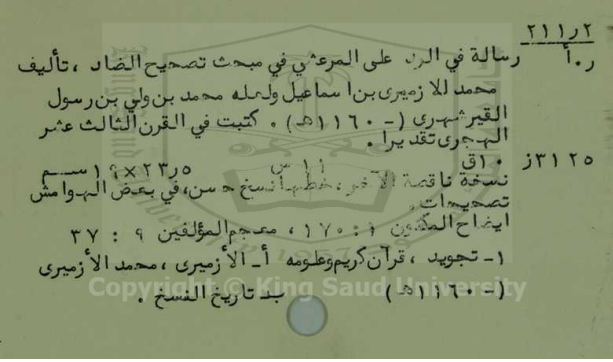 ٢ر٢١١
ر٠أ رسالة في الرد على المرعشي في مبحث تصحيح الضاد ، تأليف
محمد الازميرى بن اسماعيل ولعله محمد بن ولي بن رسول
القيرشهرى (-١١٦٠هـ) . كتبت في القرن الثالث عشر
الهجرى تقديرا .
٣١٢٥ز ١٠ق ١١س ٢٣٫٥×١٩سم
نسخة ناقصة الآخر، خطها نسخ حسن، في بعض الهوامش
تصحيحات .
ايضاح المكنون ١ : ١٧٠ ، معجم المؤلفين ٩ : ٣٧
١- تجويد ، قرآن كريم وعلومه أ- الأزميرى ، محمد الأزميرى
(-١١٦٠هـ) ب- تاريخ النسخ .
Copyright © King Saud University